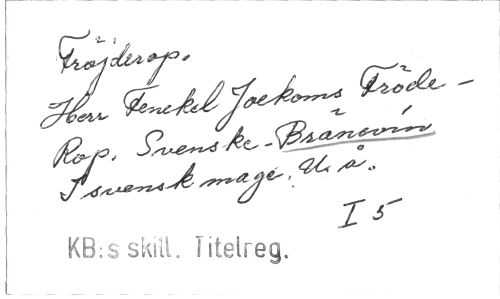 Fröjderop.
Herr Fenekel Joekoms Fröde-
Rop. Svenske-Bränevin
I svensk mage. U. å.
I 5
KB:s skill. Titelreg.